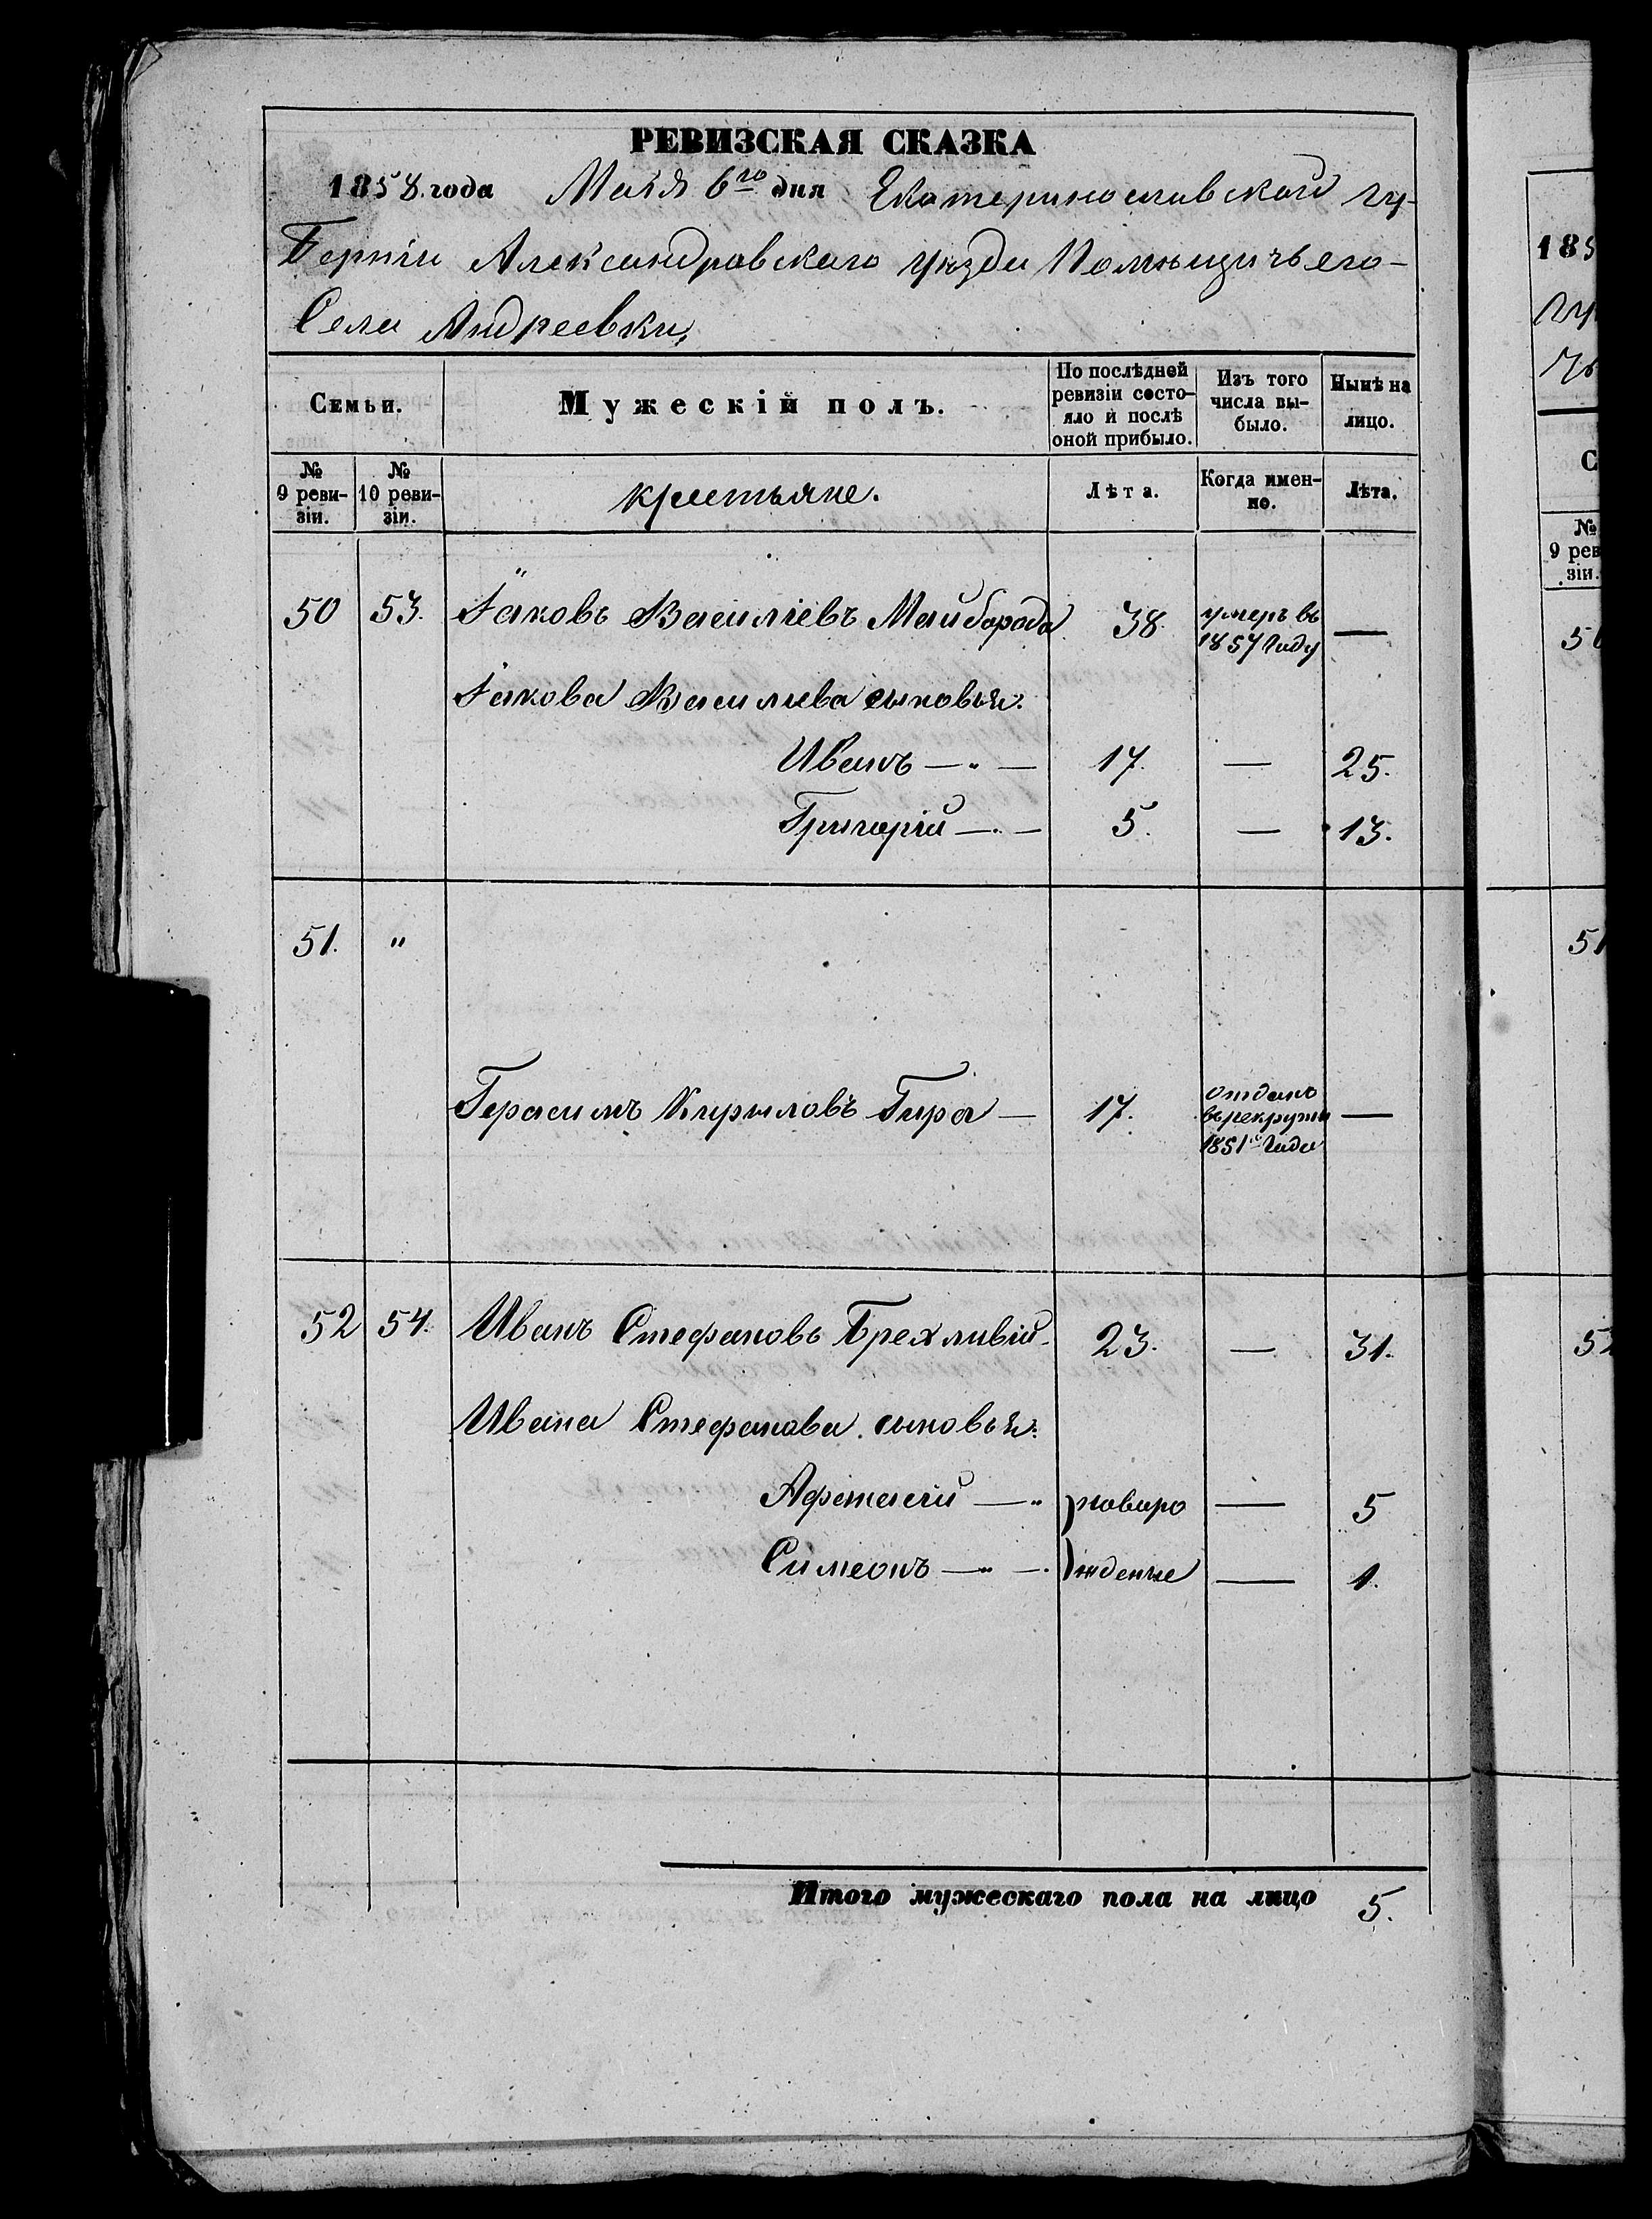 РЕВИЗСКАЯ СКАЗКА
1858 года Маія 6го дня Екатеринославской гу-
берніи Александровскаго уѣзда Помѣщичьего
Села Андреевки,
Семьи. Мужескій полъ. По послѣдней ревизіи состояло и послѣ оной прибыло. Изъ того числа выбыло. Нынѣ на лицо.
№ 9 ревизіи. № 10 ревизіи. крестьяне. Лѣта. Когда именно. Лѣта.
50 53. Іаковъ Василіевъ Майборода 38. умеръ въ 1857 Году —
Іакова Василиева сыновья:
Иванъ —„— 17. — 25.
Григорій —„— 5. — 13.
51. „
Герасимъ Кирыловъ Гира — 17. отданъ въ рекруты 1851го Года —
52 54. Иванъ Стефановъ Брехливій 23. — 31.
Ивана Стефанова сыновья:
Афанасій —„ новоро — 5
Симеонъ —„— жденые — 1.
Итого мужескаго пола на лицо 5.
185
гу
чь
С
№
9 рев
зіи.
50
51
52